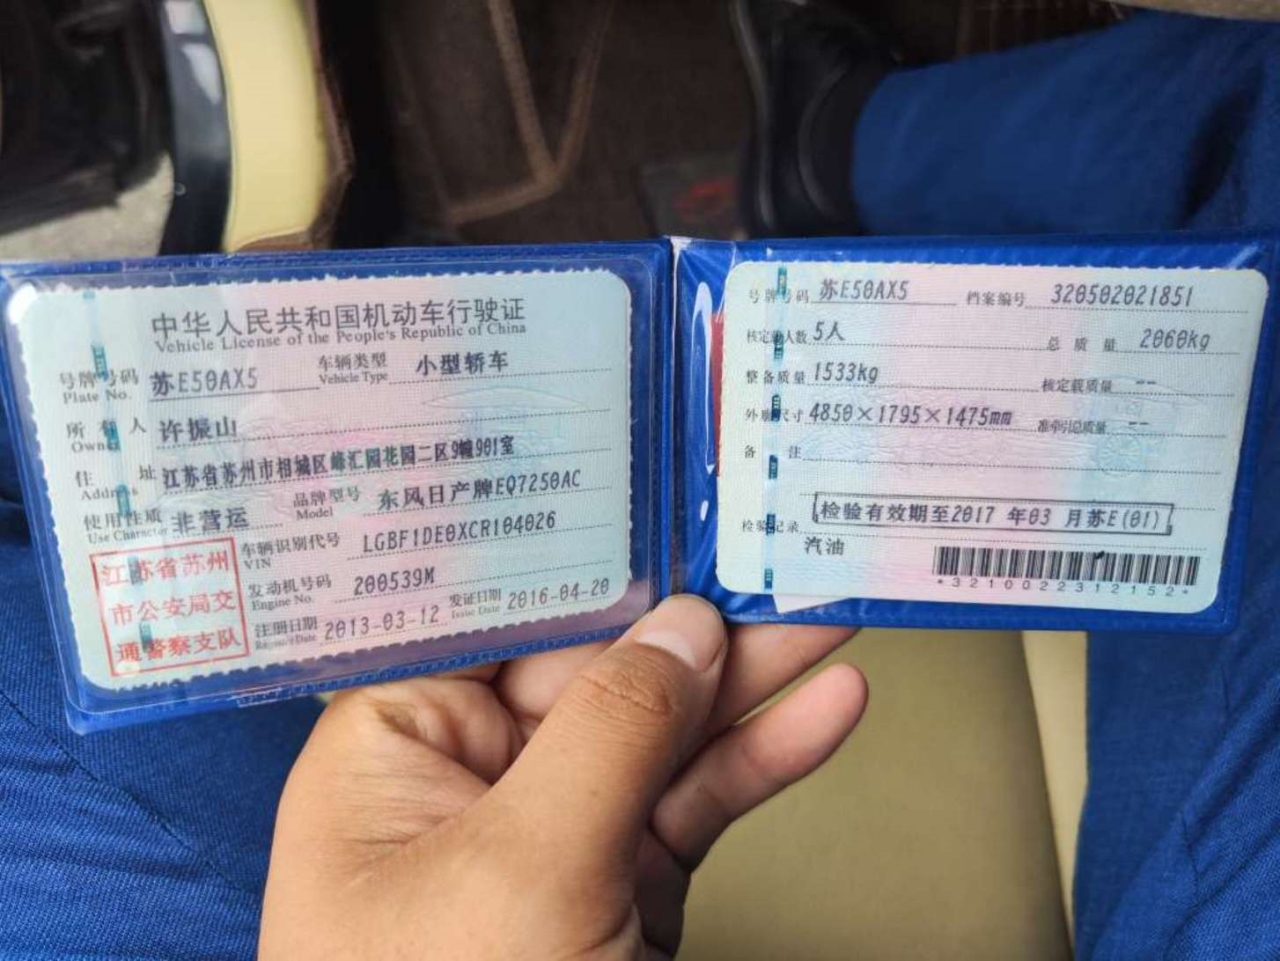 中华人民共和国机动车行驶证
Vehicle License of the People's Republic of China
号牌号码 苏E50AX5 车辆类型 小型轿车
Plate No. Vehicle Type
所有人 许振山
Owner
住址 江苏省苏州市相城区峰汇园花园二区9幢901室
Address
使用性质 非营运 品牌型号 东风日产牌EQ7250AC
Use Character Model
江苏省苏州
市公安局交
通警察支队
车辆识别代号 LGBF1DE0XCR104026
VIN
发动机号码 200539M
Engine No.
注册日期 2013-03-12 发证日期 2016-04-20
Register Date Issue Date
号牌号码 苏E50AX5 档案编号 320502021851
核定载人数 5人 总质量 2060kg
整备质量 1533kg 核定载质量 --
外廓尺寸 4850×1795×1475mm 准牵引总质量 --
备注
检验记录 检验有效期至2017 年03 月苏E(01)
汽油
*3210022312152*